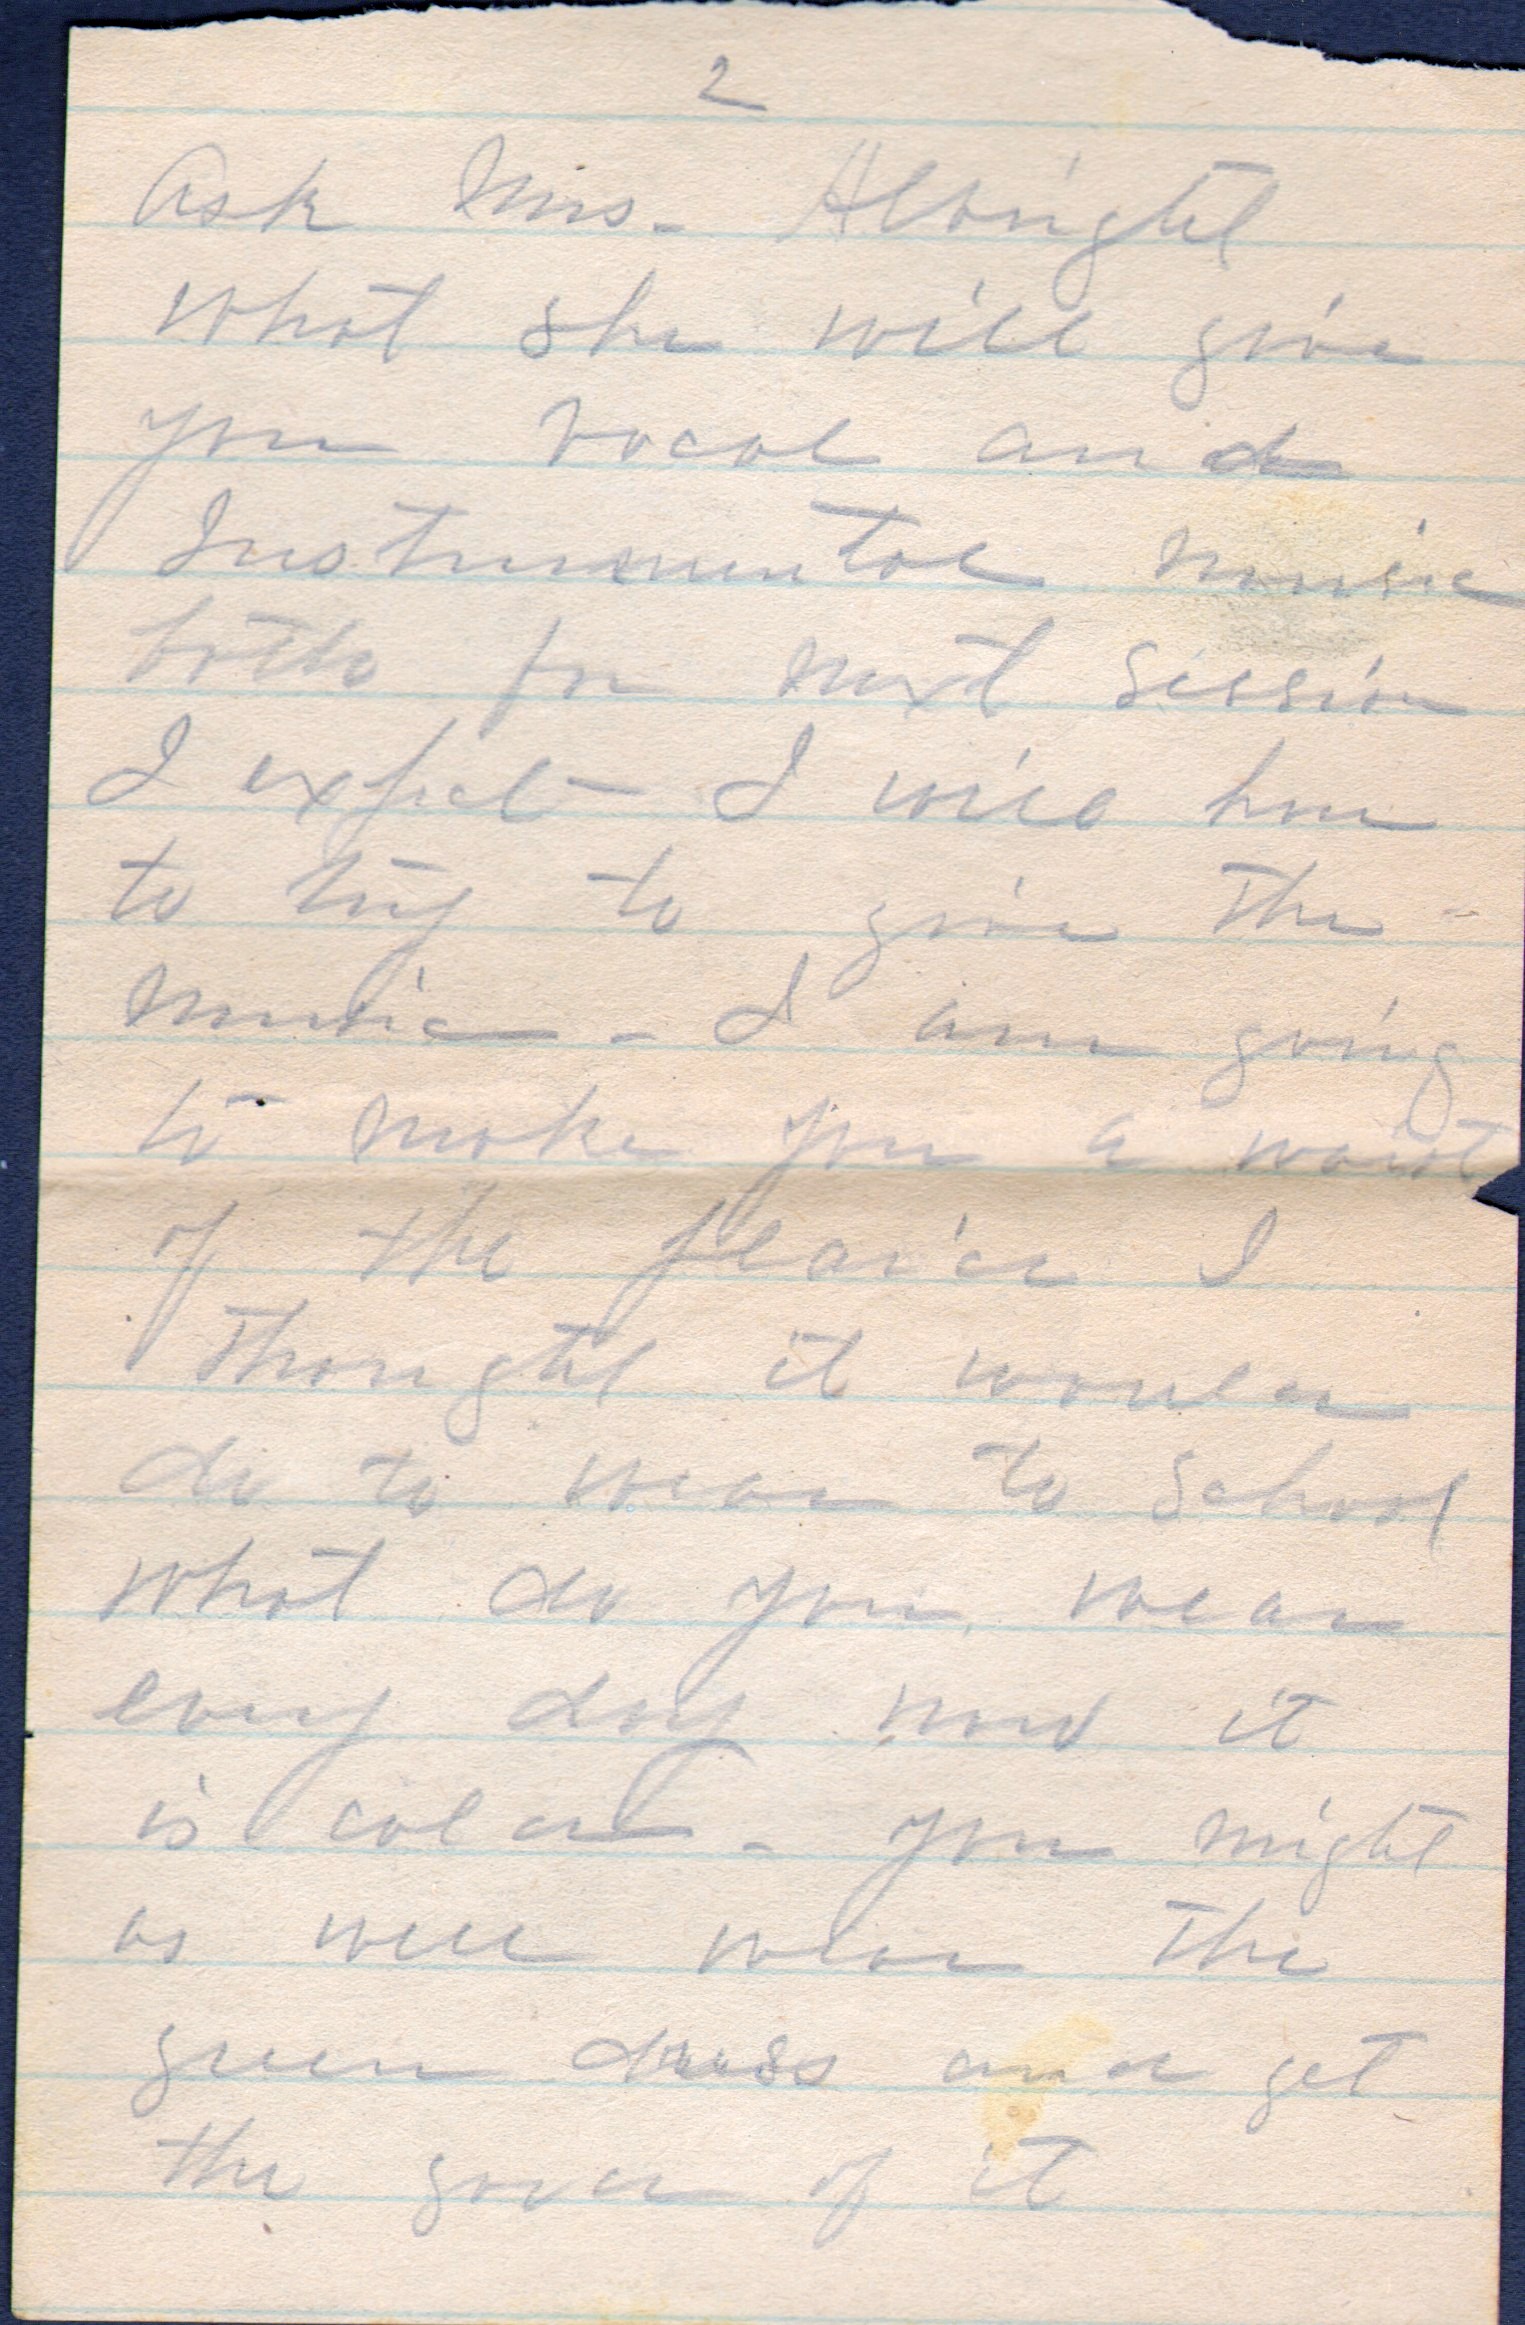 2
Ask Mrs. Albright
what she will give
you vocal and
Instrumental music
both for next session
I expect I will have
to try to give the
music - I am going
to make you a waist
of the plaid I
thought it would
do to wear to school
what do you wear
every day now it
is cold - you might
as well wear the
green dress and get
the good of it